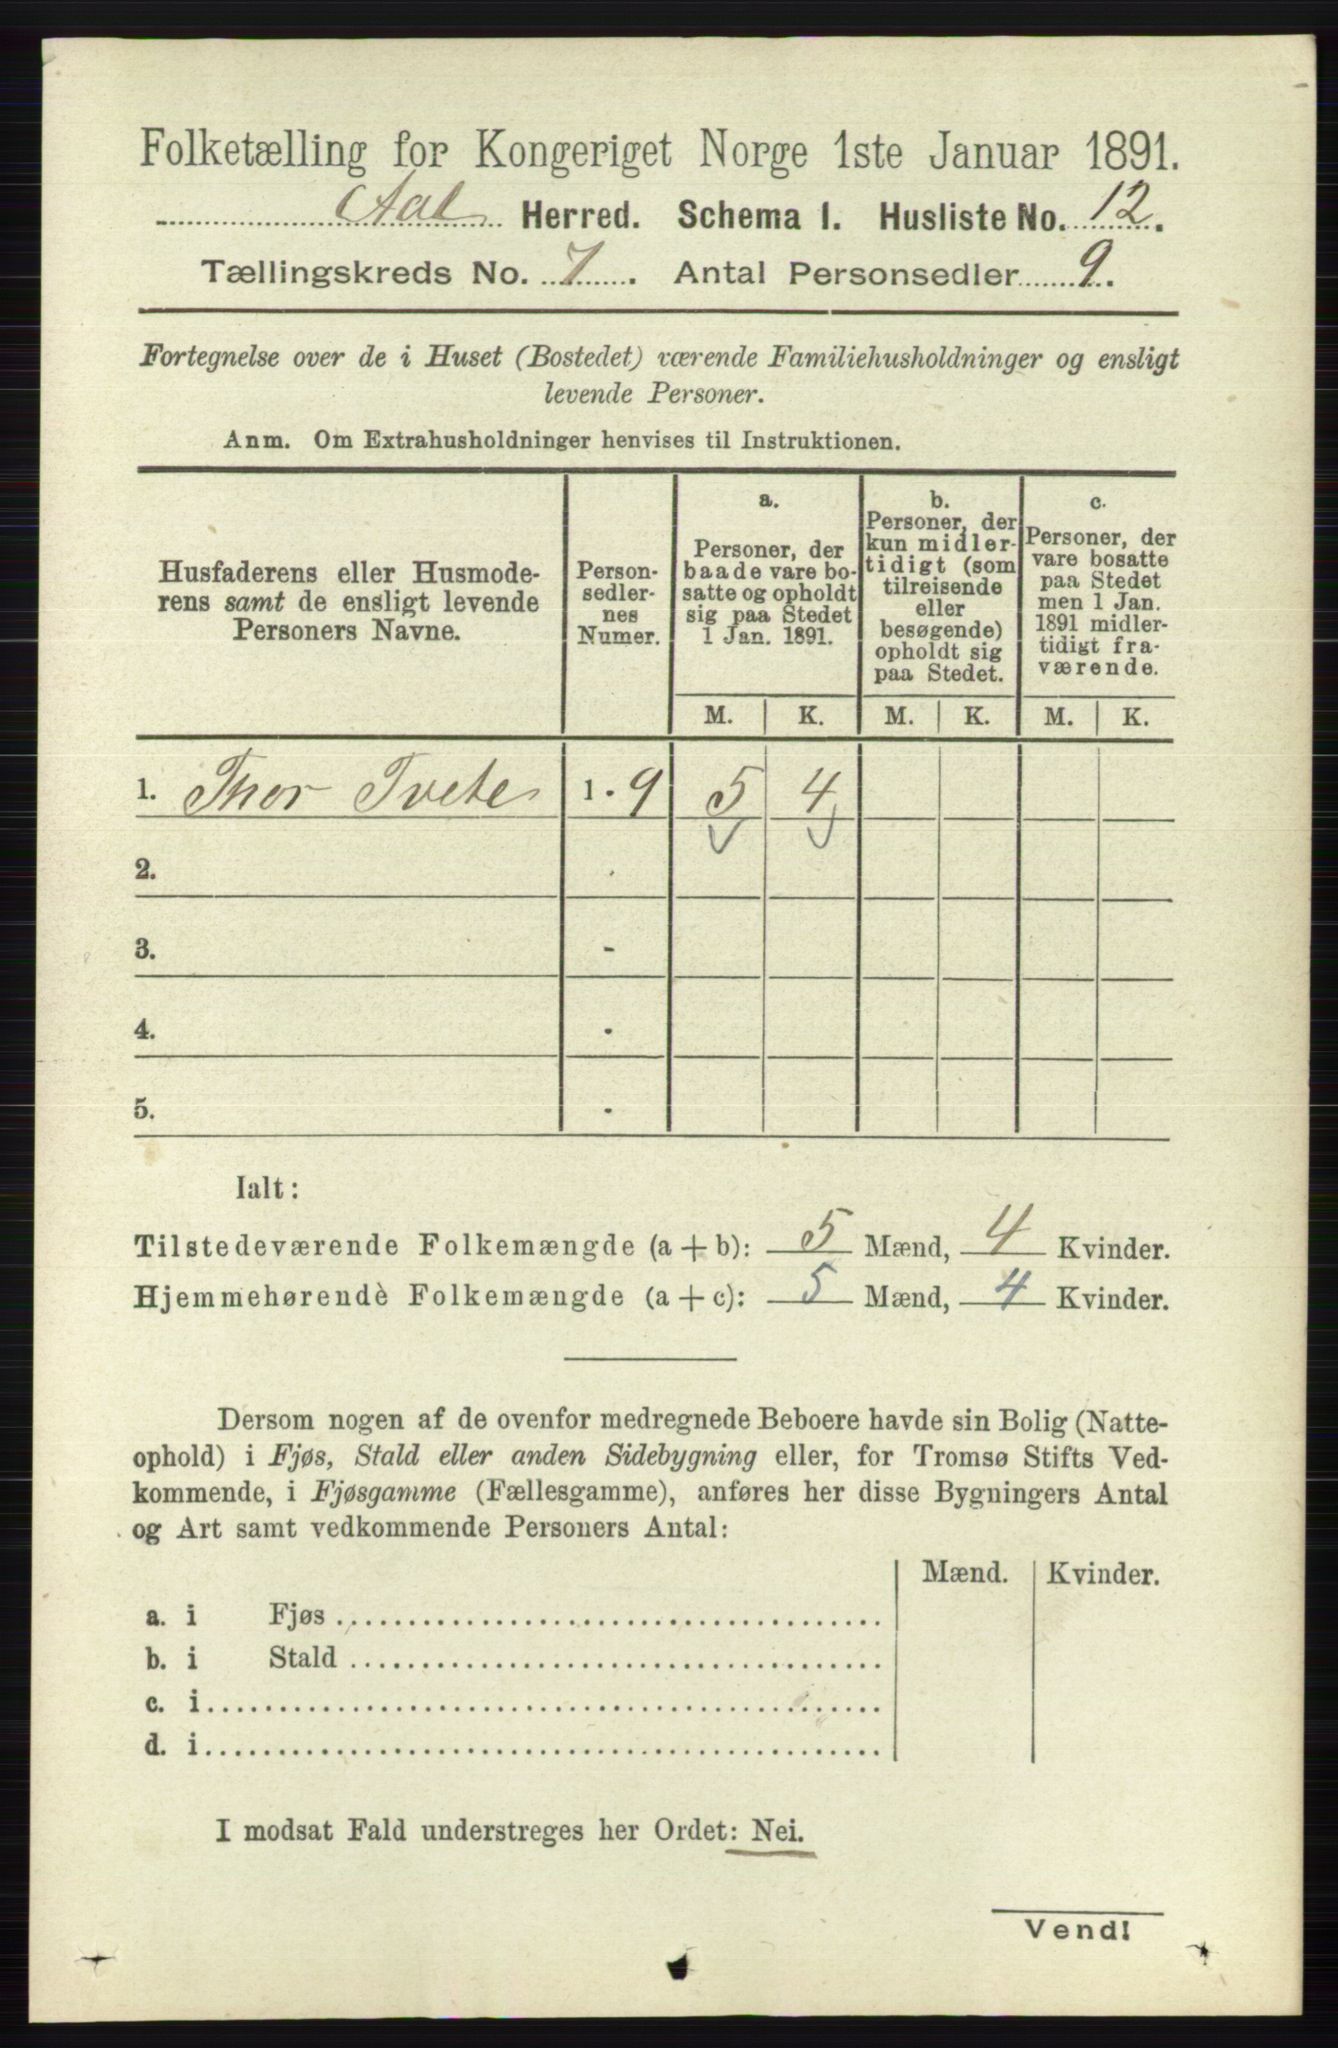 Folketælling for Kongeriget Norge 1ste Januar 1891.
Aal Herred. Schema 1. Husliste No. 12.
Tællingskreds No. 7. Antal Personsedler 9.
Fortegnelse over de i Huset (Bostedet) værende Familiehusholdninger og ensligt
levende Personer.
Anm. Om Extrahusholdninger henvises til Instruktionen.
Husfaderens eller Husmode-
rens samt de ensligt levende
Personers Navne.
Person-
sedler-
nes
Numer.
a.
Personer, der
baade vare bo-
satte og opholdt
sig paa Stedet
1 Jan. 1891.
b.
Personer, der
kun midler-
tidigt (som
tilreisende
eller
besøgende)
opholdt sig
paa Stedet.
c.
Personer, der
vare bosatte
paa Stedet
men 1 Jan.
1891 midler-
tidigt fra-
værende.
M. K. M. K. M. K.
1. Thor Tvete 1 - 9 5 4
2.
3. -
4. -
5. -
Ialt:
Tilstedeværende Folkemængde (a + b): 5 Mænd, 4 Kvinder.
Hjemmehørendè Folkemængde (a + c): 5 Mænd, 4 Kvinder.
Dersom nogen af de ovenfor medregnede Beboere havde sin Bolig (Natte-
ophold) i Fjøs, Stald eller anden Sidebygning eller, for Tromsø Stifts Ved-
kommende, i Fjøsgamme (Fællesgamme), anføres her disse Bygningers Antal
og Art samt vedkommende Personers Antal:
Mænd. Kvinder.
a. i Fjøs
b. i Stald
c. i
d. i
I modsat Fald understreges her Ordet: Nei.
Vend!